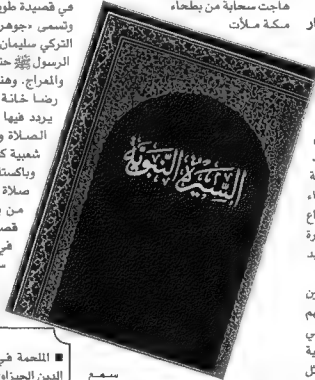 هاجت سحابة من بطحاء
مكة ملأت
السيرة النبوية
سمع
في قصيدة طو
وتسمى «جوهر
التركي سليمان
الرسول ﷺ حت
والمعراج. وهنا
رضا خانة
يردد فيها
الصلاة و
شعبية ك
وباكست
صلاة
من ب
قص
في
■ الملحمة في
الدين الجيزاو